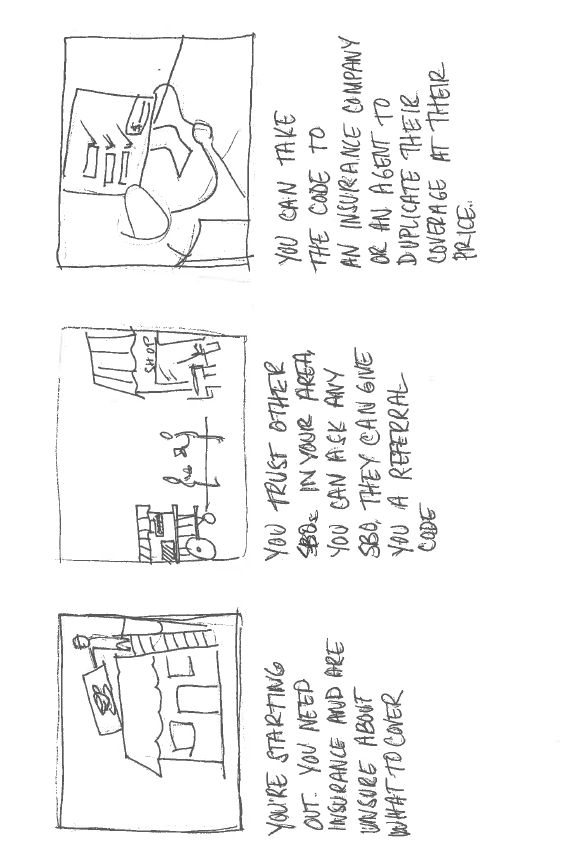 YOU'RE STARTING
OUT. YOU NEED
INSURANCE AND ARE
UNSURE ABOUT
WHAT TO COVER
SHOP
YOU TRUST OTHER
SBOs IN YOUR AREA,
YOU CAN ASK ANY
SBO, THEY CAN GIVE
YOU A REFERRAL
CODE
$
YOU CAN TAKE
THE CODE TO
AN INSURANCE COMPANY
OR AN AGENT TO
DUPLICATE THEIR
COVERAGE AT THEIR
PRICE.